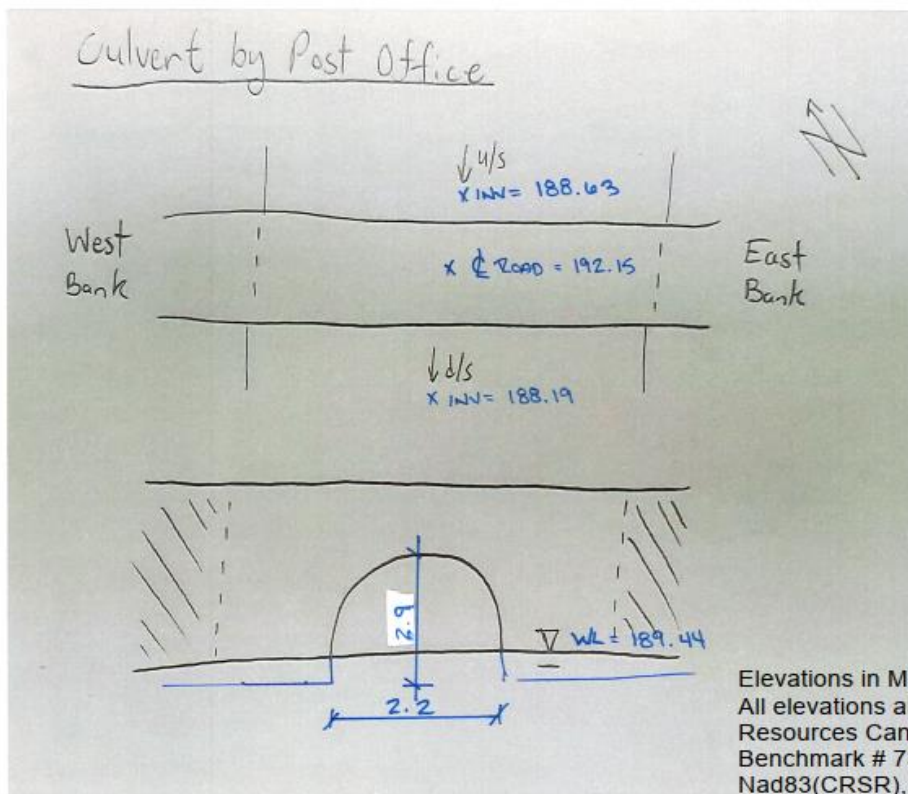 Culvert by Post Office
↓ u/s
x INV= 188.63
West
Bank
x ℄ ROAD = 192.15
East
Bank
↓ d/s
x INV= 188.19
2.9
WL = 189.44
2.2
Elevations in M
All elevations a
Resources Can
Benchmark # 7
Nad83(CRSR),